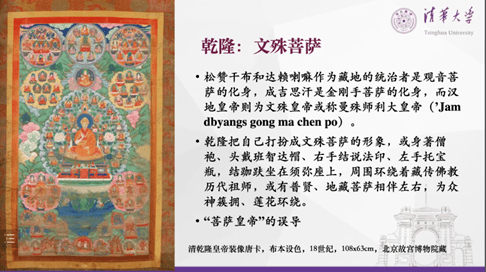 清华大学
Tsinghua University
乾隆：文殊菩萨
• 松赞干布和达赖喇嘛作为藏地的统治者是观音菩
萨的化身，成吉思汗是金刚手菩萨的化身，而汉
地皇帝则为文殊皇帝或称曼殊师利大皇帝（’Jam
dbyangs gong ma chen po）。
• 乾隆把自己打扮成文殊菩萨的形象，或身著僧
袍、头戴班智达帽、右手结说法印、左手托宝
瓶，结跏趺坐在须弥座上，周围环绕着藏传佛教
历代祖师，或有普贤、地藏菩萨相伴左右，为众
神簇拥、莲花环绕。
• “菩萨皇帝”的误导
清乾隆皇帝装像唐卡，布本设色，18世纪，108x63cm，北京故宫博物院藏